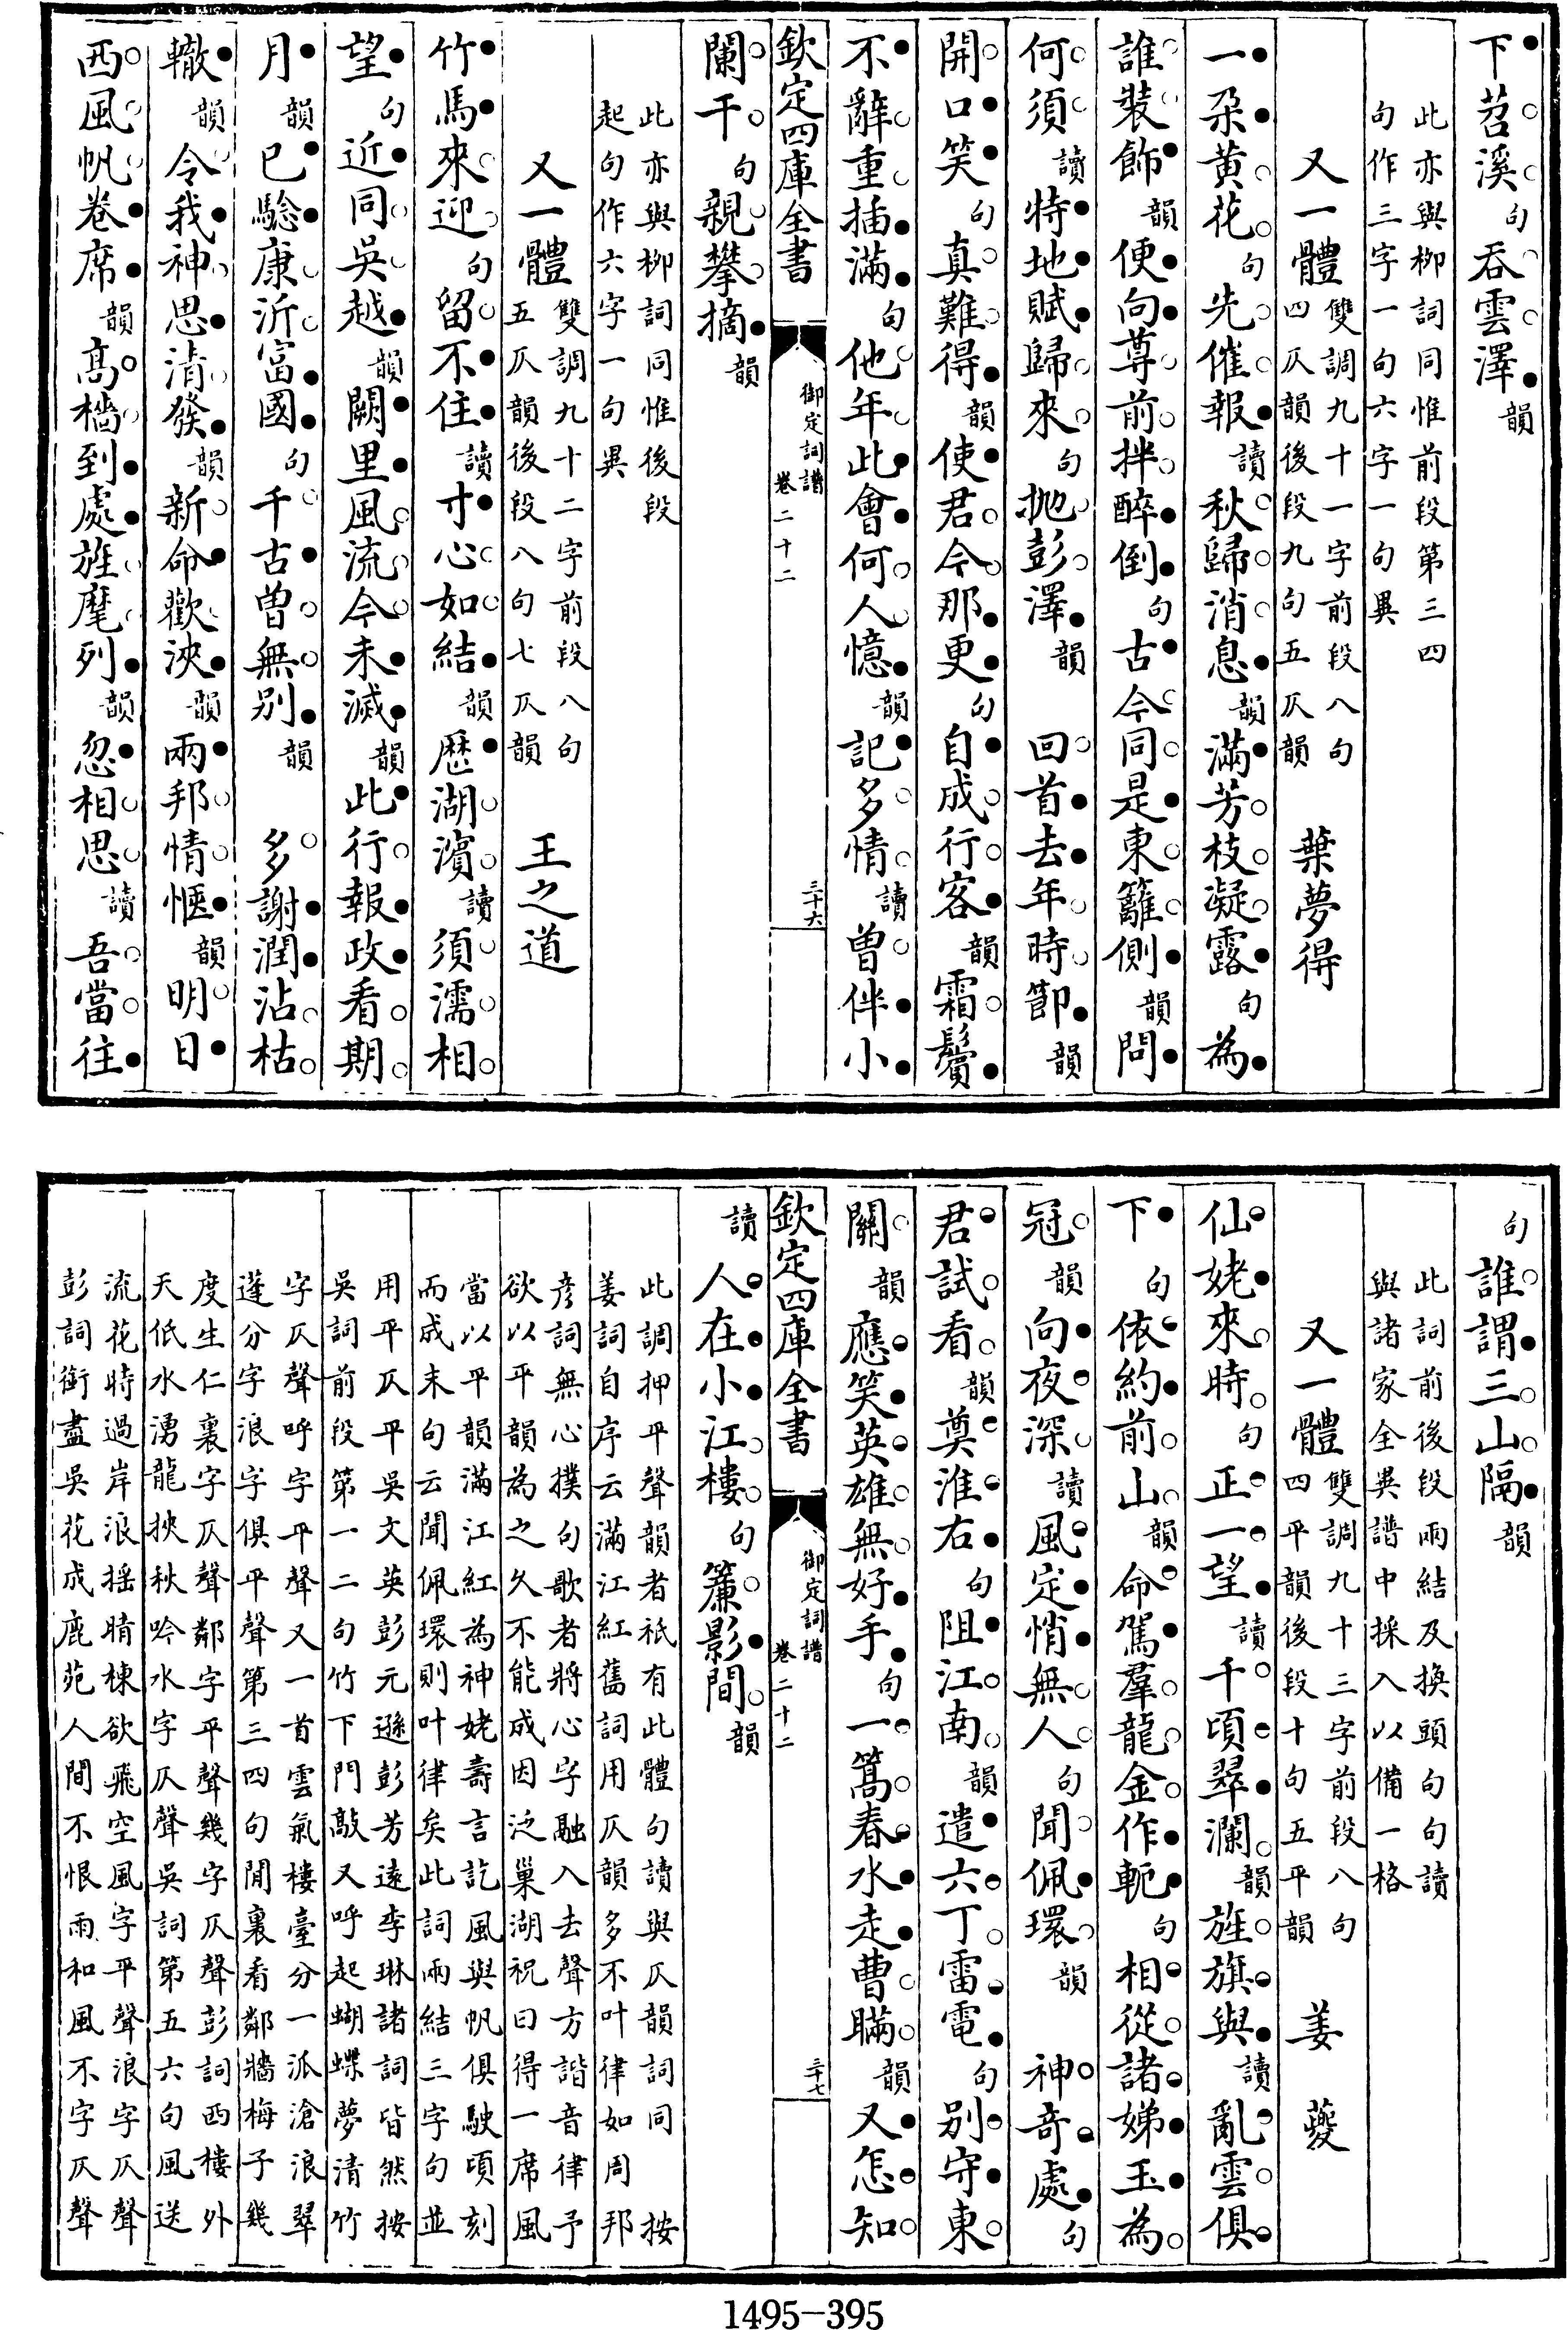 下苕溪句吞雲澤韻
此亦與柳詞同惟前段第三四
句作三字一句六字一句異
又一體雙調九十一字前段八句
四仄韻後段九句五仄韻葉夢得
一朶黄花句先催報讀秋歸消息韻滿芳枝凝露句為
誰裝飾韻便向尊前拌醉倒句古今同是東籬側韻問
何須讀特地賦歸來句抛彭澤韻回首去年時節韻
開口笑句真難得韻使君今那更句自成行客韻霜鬢
不辭重插滿句他年此會何人憶韻記多情讀曽伴小
欽定四庫全書
御定詞譜
卷二十二
三十六
闌干句親攀摘韻
此亦與柳詞同惟後段
起句作六字一句異
又一體雙調九十二字前段八句
五仄韻後段八句七仄韻王之道
竹馬來迎句留不住讀寸心如結韻歴湖濵讀須濡相
望句近同吳越韻闕里風流今未滅韻此行報政看期
月韻已驗康沂富國句千古曽無别韻多謝潤沾枯
轍韻令我神思清發韻新命歡浹韻兩邦情愜韻明日
西風帆卷席韻髙檣到處旌麾列韻忽相思讀吾當往
句誰謂三山隔韻
此詞前後段兩結及換頭句句讀
與諸家全異譜中採入以備一格
又一體雙調九十三字前段八句
四平韻後段十句五平韻姜夔
仙姥來時句正一望讀千頃翠瀾韻旌旗與讀亂雲俱
下句依約前山韻命駕羣龍金作軛句相從諸娣玉為
冠韻向夜深讀風定悄無人句聞佩環韻神奇處句
君試看韻奠淮右句阻江南韻遣六丁雷電句别守東
關韻應笑英雄無好手句一篙春水走曹瞞韻又怎知
欽定四庫全書
御定詞譜
卷二十二
三十七
讀人在小江樓句簾影間韻
此調押平聲韻者祇有此體句讀與仄韻詞同按
姜詞自序云滿江紅舊詞用仄韻多不叶律如周邦
彦詞無心撲句歌者將心字融入去聲方諧音律予
欲以平韻為之久不能成因泛巢湖祝曰得一席風
當以平韻滿江紅為神姥壽言訖風與帆俱駛頃刻
而成末句云聞佩環則叶律矣此詞兩結三字句並
用平仄平吳文英彭元遜彭芳遠李琳諸詞皆然按
吳詞前段第一二句竹下門敲又呼起蝴蝶夢清竹
字仄聲呼字平聲又一首雲氣樓臺分一派滄浪翠
蓬分字浪字俱平聲第三四句閒裏看鄰牆梅子幾
度生仁裏字仄聲鄰字平聲幾字仄聲彭詞西樓外
天低水湧龍挾秋吟水字仄聲吳詞第五六句風送
流花時過岸浪揺晴棟欲飛空風字平聲浪字仄聲
彭詞銜盡吳花成鹿苑人間不恨雨和風不字仄聲
1495-395